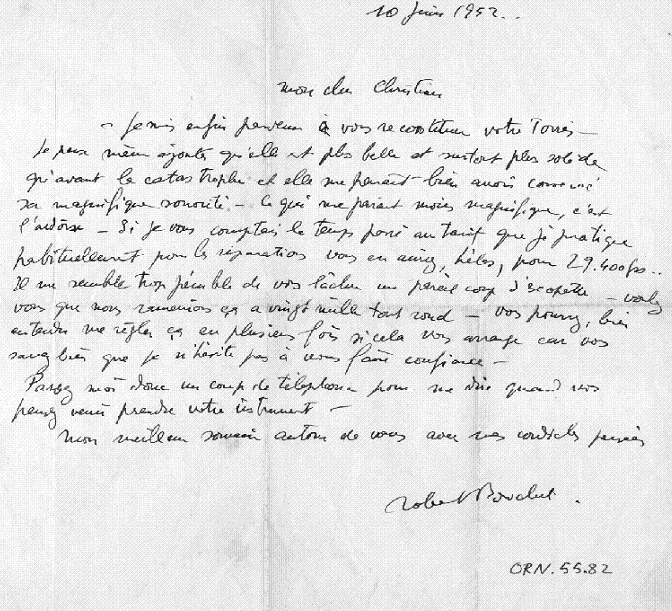 10 Juin 1952..
mon cher Christian
- Je suis enfin parvenu à vous reconstituer votre Torrès -
Je peux même ajouter qu'elle est plus belle et surtout plus solide
qu'avant la catastrophe et elle me paraît bien avoir conservé
sa magnifique sonorité - Ce qui me paraît moins magnifique, c'est
l'ardoise - Si je vous comptais le temps passé au tarif que je pratique
habituellement pour les réparations vous en auriez, hélas, pour 29.400frs..
Il me semble trop pénible de vous lâcher un pareil coup d'escopette - voulez
vous que nous ramenions ça a vingt mille tout rond - vous pourrez, bien
entendu me régler ça en plusieurs fois si cela vous arrange car vous
savez bien que je n'hésite pas à vous faire confiance -
Passez moi donc un coup de téléphone pour me dire quand vous
pensez venir prendre votre instrument -
Mon meilleur souvenir autour de vous avec mes cordiales pensées
Robert Bouchet.
ORN.55.82